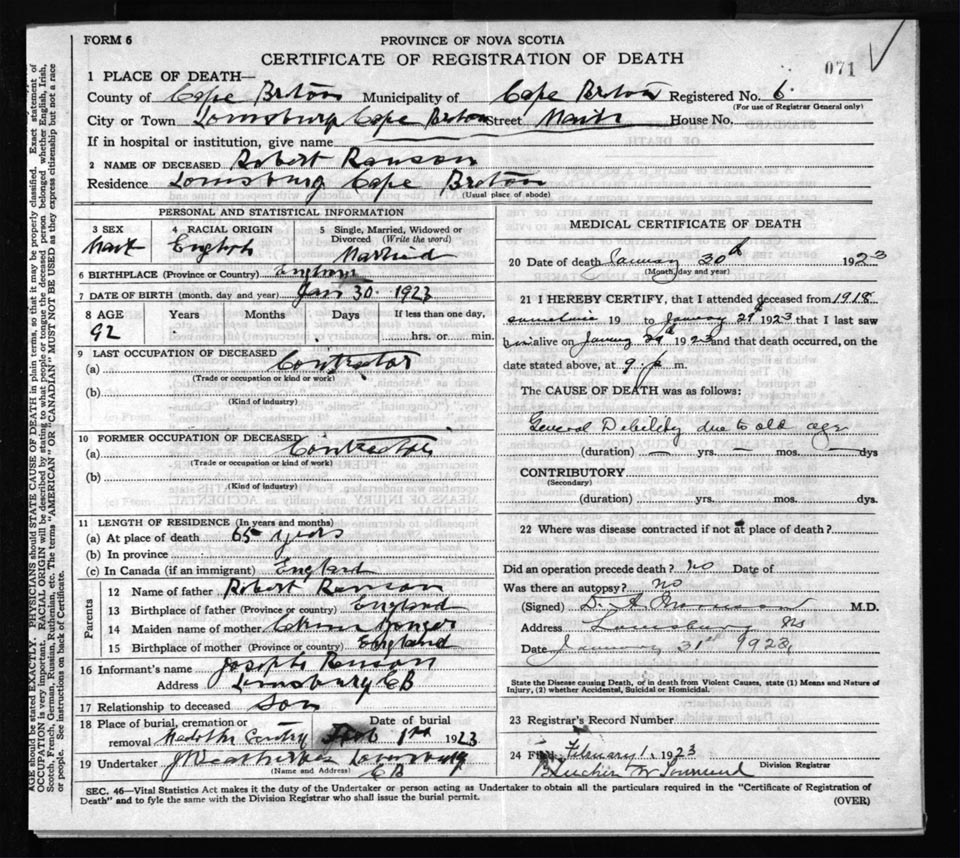 FORM 6
PROVINCE OF NOVA SCOTIA
CERTIFICATE OF REGISTRATION OF DEATH
071
1 PLACE OF DEATH—
County of Cape Breton Municipality of Cape Breton Registered No. 6.
(For use of Registrar General only)
City or Town Louisburg Cape Breton Street House No.
If in hospital or institution, give name
2 NAME OF DECEASED Robert Ranson
Residence Louisburg Cape Breton
(Usual place of abode)
PERSONAL AND STATISTICAL INFORMATION
3 SEX 4 RACIAL ORIGIN 5 Single, Married, Widowed or Divorced (Write the word)
English Married
6 BIRTHPLACE (Province or Country)
7 DATE OF BIRTH (month, day and year) Jan 30. 1923
8 AGE Years Months Days If less than one day,
92 hrs. or min.
9 LAST OCCUPATION OF DECEASED
(a) Contractor
(Trade or occupation or kind or work)
(b)
(Kind of industry)
10 FORMER OCCUPATION OF DECEASED
(a) Contractor
(Trade or occupation or kind or work)
(b)
(Kind of industry)
11 LENGTH OF RESIDENCE (In years and months)
(a) At place of death 65 years
(b) In province
(c) In Canada (if an immigrant) England
Parents
12 Name of father Robert Ranson
13 Birthplace of father (Province or country) England
14 Maiden name of mother
15 Birthplace of mother (Province or country) England
16 Informant's name Joseph Ranson
Address Louisburg CB
17 Relationship to deceased Son
18 Place of burial, cremation or removal Date of burial
Feb 1st 1923
19 Undertaker Louisburg
(Name and Address) CB
MEDICAL CERTIFICATE OF DEATH
20 Date of death January 30th 1923
(Month, day and year)
21 I HEREBY CERTIFY, that I attended deceased from 1918
sometime 19 to January 29th 1923 that I last saw
him alive on January 29th 1923 and that death occurred, on the
date stated above, at 9. m.
The CAUSE OF DEATH was as follows:
General Debility due to old age
(duration) — yrs. — mos. — dys
CONTRIBUTORY
(Secondary)
(duration) yrs. mos. dys.
22 Where was disease contracted if not at place of death?
Did an operation precede death? No Date of
Was there an autopsy? No
(Signed) D. A. M.D.
Address Louisburg NS
Date January 31st 1923
State the Disease causing Death, or in death from Violent Causes, state (1) Means and Nature of
Injury, (2) whether Accidental, Suicidal or Homicidal.
23 Registrar's Record Number
24 Filed February 1. 1923
Townsend Division Registrar
SEC. 46—Vital Statistics Act makes it the duty of the Undertaker or person acting as Undertaker to obtain all the particulars required in the "Certificate of Registration of
Death" and to fyle the same with the Division Registrar who shall issue the burial permit.
(OVER)
AGE should be stated EXACTLY. PHYSICIANS should STATE CAUSE OF DEATH in plain terms, so that it may be properly classified. Exact statement of
OCCUPATION is very important. RACIAL ORIGIN will be described by stating to what people or tongue the deceased person belonged whether English, Irish,
Scotch, French, German, Russian, Ruthenian, etc. The terms "AMERICAN" OR "CANADIAN" MUST NOT BE USED as they express citizenship but not a race
or people. See instructions on back of Certificate.